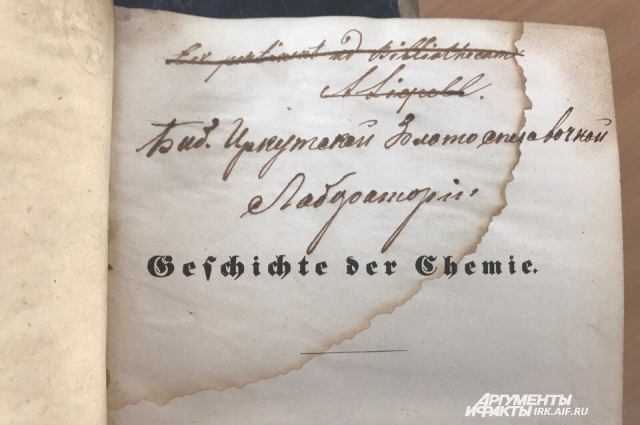 pertinent ad Bibliothecam
Биб. Иркутской Золотосплавочной
Лабораторіи.
Geschichte der Chemie.
АРГУМЕНТЫ
И ФАКТЫ IRK.AIF.RU